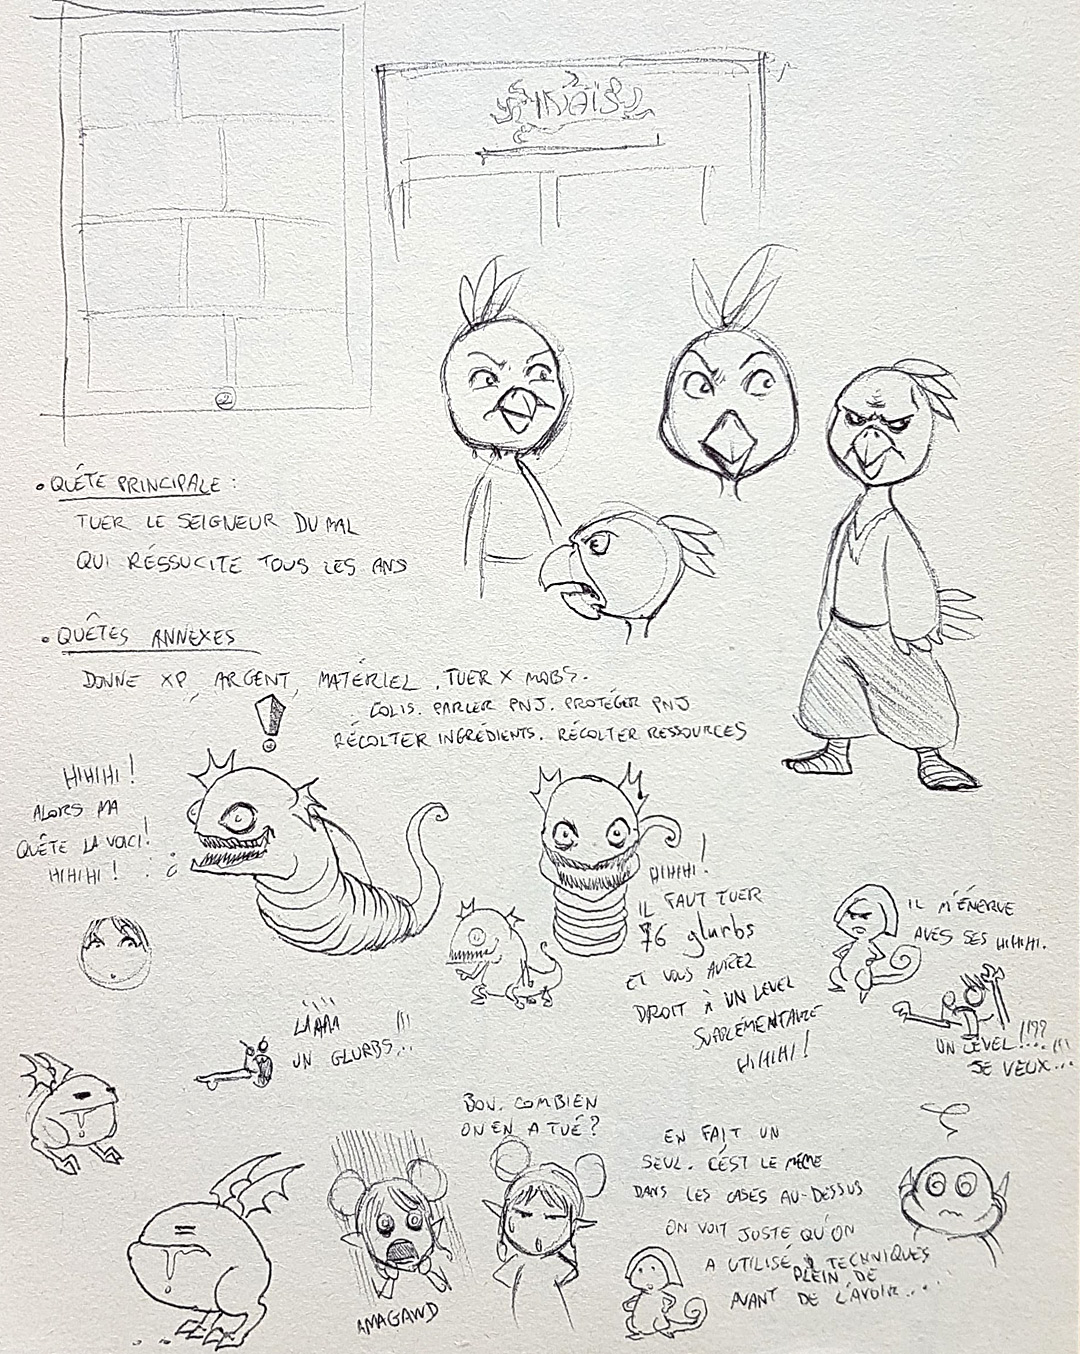 2
• QUÊTE PRINCIPALE :
TUER LE SEIGNEUR DU MAL
QUI RÉSSUCITE TOUS LES ANS
• QUÊTES ANNEXES
DONNE XP, ARGENT, MATÉRIEL. TUER X MOBS.
COLIS. PARLER PNJ. PROTÉGER PNJ
RÉCOLTER INGRÉDIENTS. RÉCOLTER RESSOURCES
!
HIHIHI !
ALORS MA
QUÊTE LA VOICI !
HIHIHI !
HIHIHI !
IL FAUT TUER
76 glurbs
ET VOUS AUREZ
DROIT À UN LEVEL
SUPPLÉMENTAIRE
HIHIHI !
IL M'ÉNERVE
AVES SES HIHIHI.
UN LEVEL !!??
JE VEUX... !!!
LÀÀÀÀ !!!
UN GLURBS...
BON. COMBIEN
ON EN A TUÉ ?
EN FAIT UN
SEUL. C'EST LE MÊME
DANS LES CASES AU-DESSUS
ON VOIT JUSTE QU'ON
A UTILISÉ PLEIN DE TECHNIQUES
AVANT DE L'AVOIR...
AMAGAND